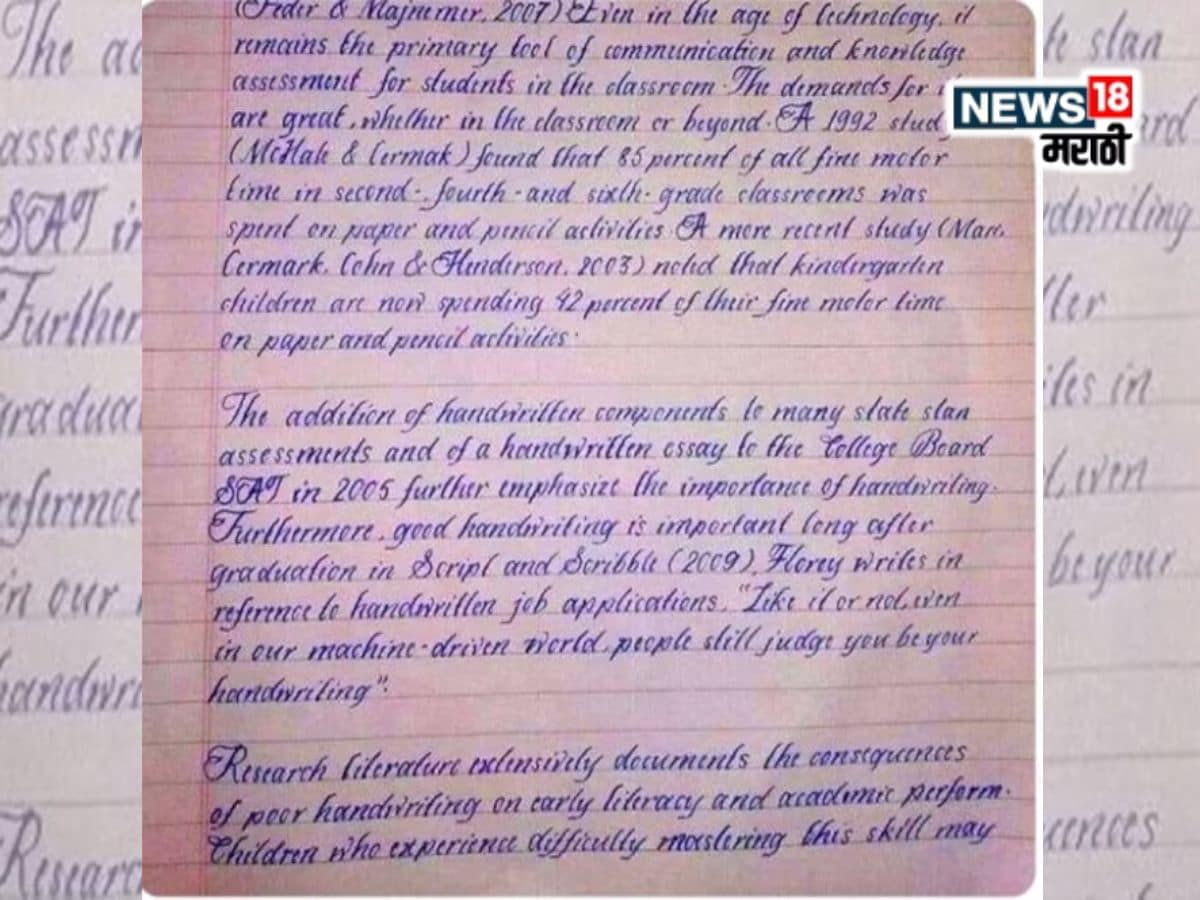 (Feder & Majnemer, 2007) Even in the age of technology, it
remains the primary tool of communication and knowledge
assessment for students in the classroom. The demands for
are great, whether in the classroom or beyond. A 1992 stud
(McHale & Cermak) found that 85 percent of all fine motor
time in second-, fourth-and sixth-grade classrooms was
spent on paper and pencil activities A more recent study (Marr,
Cermark, Cohn & Henderson, 2003) noted that kindergarten
children are now spending 42 percent of their fine motor time
on paper and pencil activities.
The addition of handwritten components to many state stan
assessments and of a handwritten essay to the College Board
SAT in 2005 further emphasize the importance of handwriting.
Furthermore, good handwriting is important long after
graduation in Script and Scribble (2009), Florey writes in
reference to handwritten job applications, "Like it or not, even
in our machine-driven world, people still judge you be your
handwriting".
Research literature extensively documents the consequences
of poor handwriting on early literacy and academic perform.
Children who experience difficulty mastering this skill may
NEWS 18
मराठी